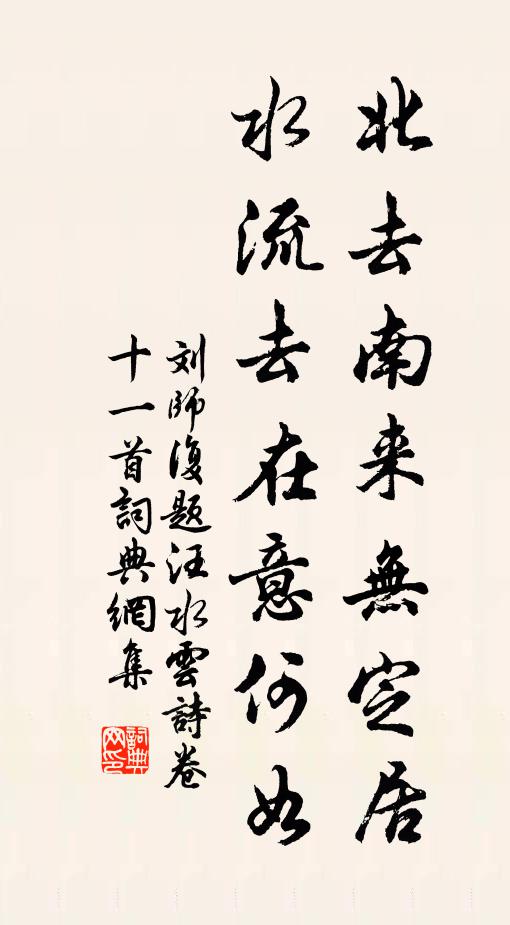 北去南来無定居
水流去在意何如
刘師復題汪水雲詩卷
十一首詞典網集
詞典網印